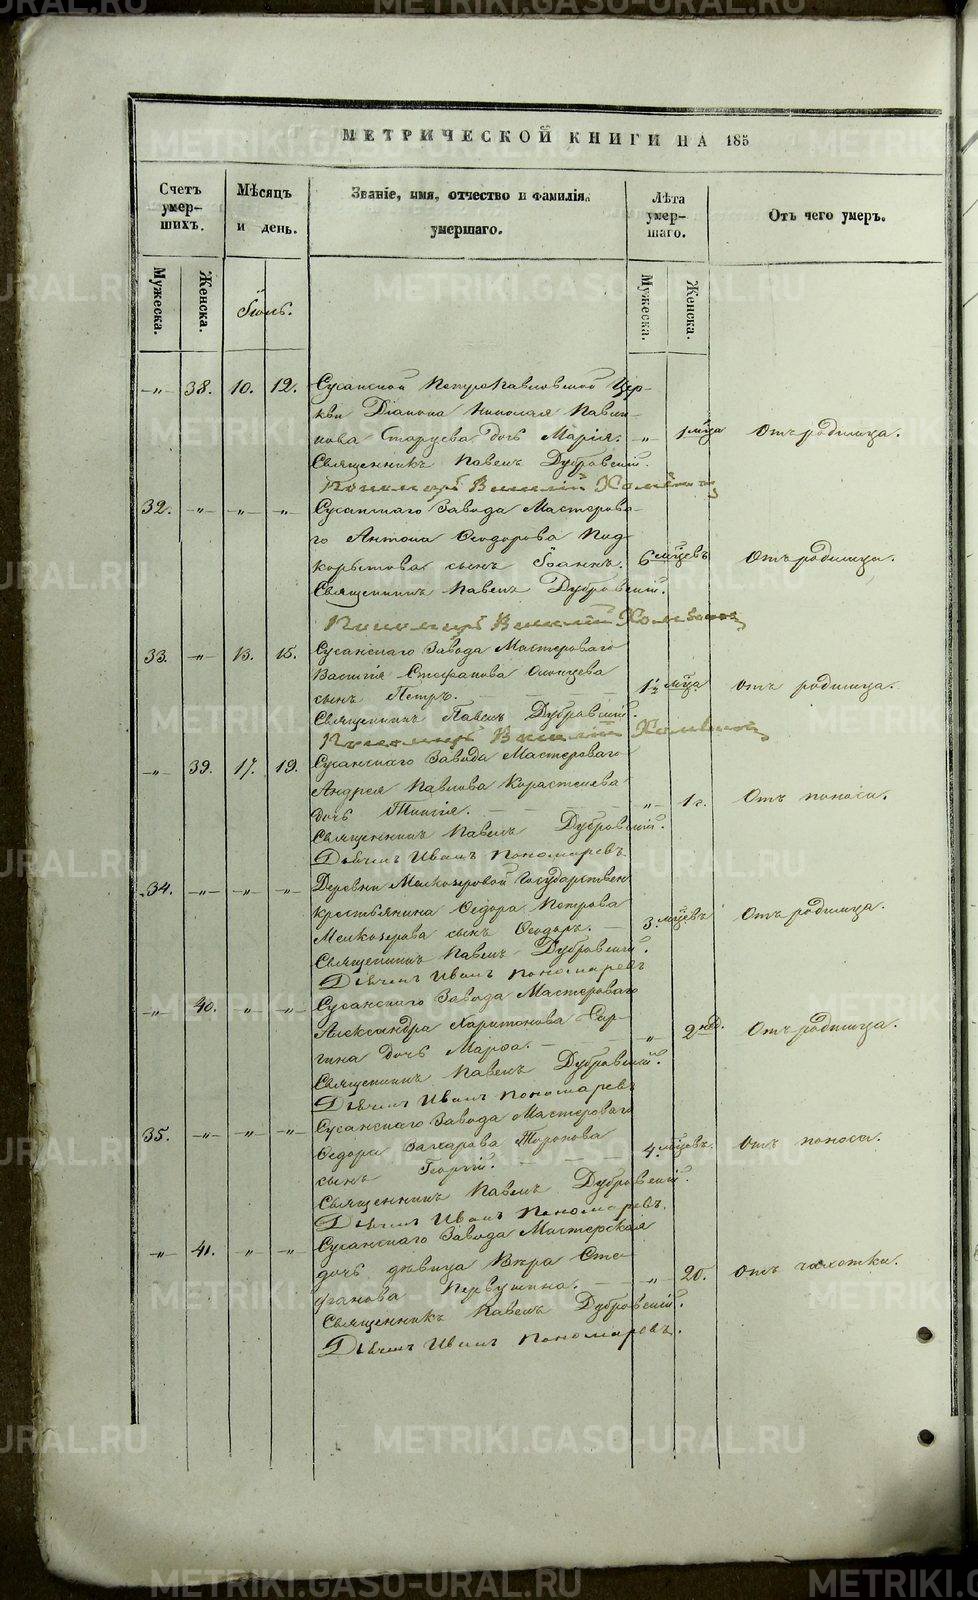 МЕТРИЧЕСКОЙ КНИГИ НА 185
Счетъ умер-шихъ.
Мѣсяцъ и день.
Званіе, имя, отчество и фамилія умершаго.
Лѣта умер-шаго.
Отъ чего умеръ.
Мужеска. Женска.
Іюль.
Мужеска. Женска.
-„- 38. 10. 12. Сусанской Петропавловской Цер-
кви Діакона Николая Павли-
нова Старцева дочь Марія. -„- 1 мѣсца Отъ родимца.
Священникъ Павелъ Дубровскій.
Пономарь Василій
32. -„- -„- „ Сусанскаго Завода Мастерова-
го Антона Ѳеодорова Под-
корытова сынъ Іоаннъ. 6 мѣсцевъ Отъ родимца.
Священникъ Павелъ Дубровскій.
Пономарь Василій
33. -„- 13. 15. Сусанскаго Завода Мастероваго
Василія Стефанова
сынъ Петръ. 1½ мѣсца Отъ родимца.
Священникъ Павелъ Дубровскій.
Пономарь Василій
-„- 39. 17. 19. Сусанскаго Завода Мастероваго
Андрея Павлова Корастелева
дочь -„- 1 г. Отъ поноса.
Священникъ Павелъ Дубровскій.
Дьячекъ Иванъ Пономаревъ
34. -„- -„- -„- Деревни Мелкозеровой Государствен
крестьянина Ѳедора Петрова
Мелкозерова сынъ Ѳеодоръ. 3 мѣсцевъ Отъ родимца.
Священникъ Павелъ Дубровскій.
Дьячекъ Иванъ Пономаревъ
-„- 40. -„- -„- Сусанскаго Завода Мастероваго
Александра Харитонова
дочь Марѳа. „ 2 нед. Отъ родимца.
Священникъ Павелъ Дубровскій.
Дьячекъ Иванъ Пономаревъ
35. -„- -„- -„- Сусанскаго Завода Мастероваго
Ѳедора Захарова Торопова
сынъ Георгій. 4 мѣсцевъ Отъ поноса.
Священникъ Павелъ Дубровскій.
Дьячекъ Иванъ Пономаревъ.
-„- 41. -„- -„- Сусанскаго Завода Мастерская
дочь дѣвица Вѣра Сте-
фанова Первушина. -„- 20. Отъ чахотки.
Священникъ Павелъ Дубровскій.
Дьячекъ Иванъ Пономаревъ.
METRIKI.GASO-URAL.RU